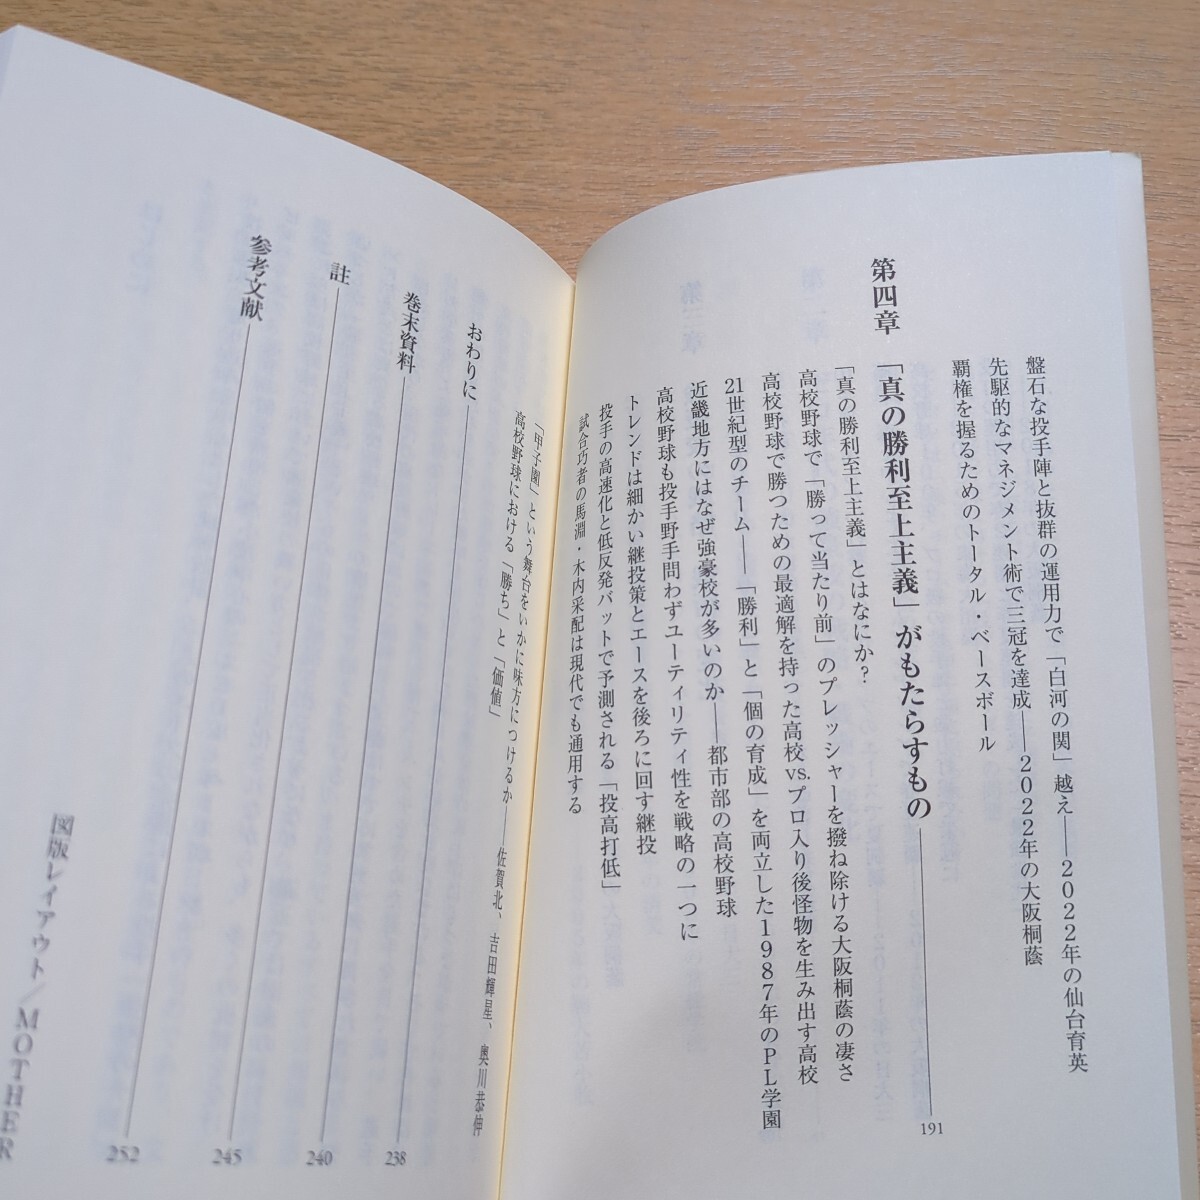 盤石な投手陣と抜群の運用力で「白河の関」越え――2022年の仙台育英
先駆的なマネジメント術で三冠を達成――2022年の大阪桐蔭
覇権を握るためのトータル・ベースボール
第四章 「真の勝利至上主義」がもたらすもの――191
「真の勝利至上主義」とはなにか?
高校野球で「勝って当たり前」のプレッシャーを撥ね除ける大阪桐蔭の凄さ
高校野球で勝つための最適解を持った高校vs.プロ入り後怪物を生み出す高校
21世紀型のチーム――「勝利」と「個の育成」を両立した1987年のPL学園
近畿地方にはなぜ強豪校が多いのか――都市部の高校野球
高校野球も投手野手問わずユーティリティ性を戦略の一つに
トレンドは細かい継投策とエースを後ろに回す継投
投手の高速化と低反発バットで予測される「投高打低」
試合巧者の馬淵・木内采配は現代でも通用する
「甲子園」という舞台をいかに味方につけるか――佐賀北、吉田輝星、奥川恭伸
高校野球における「勝ち」と「価値」
おわりに――238
巻末資料――240
註――245
参考文献――252
図版レイアウト/MOTHER